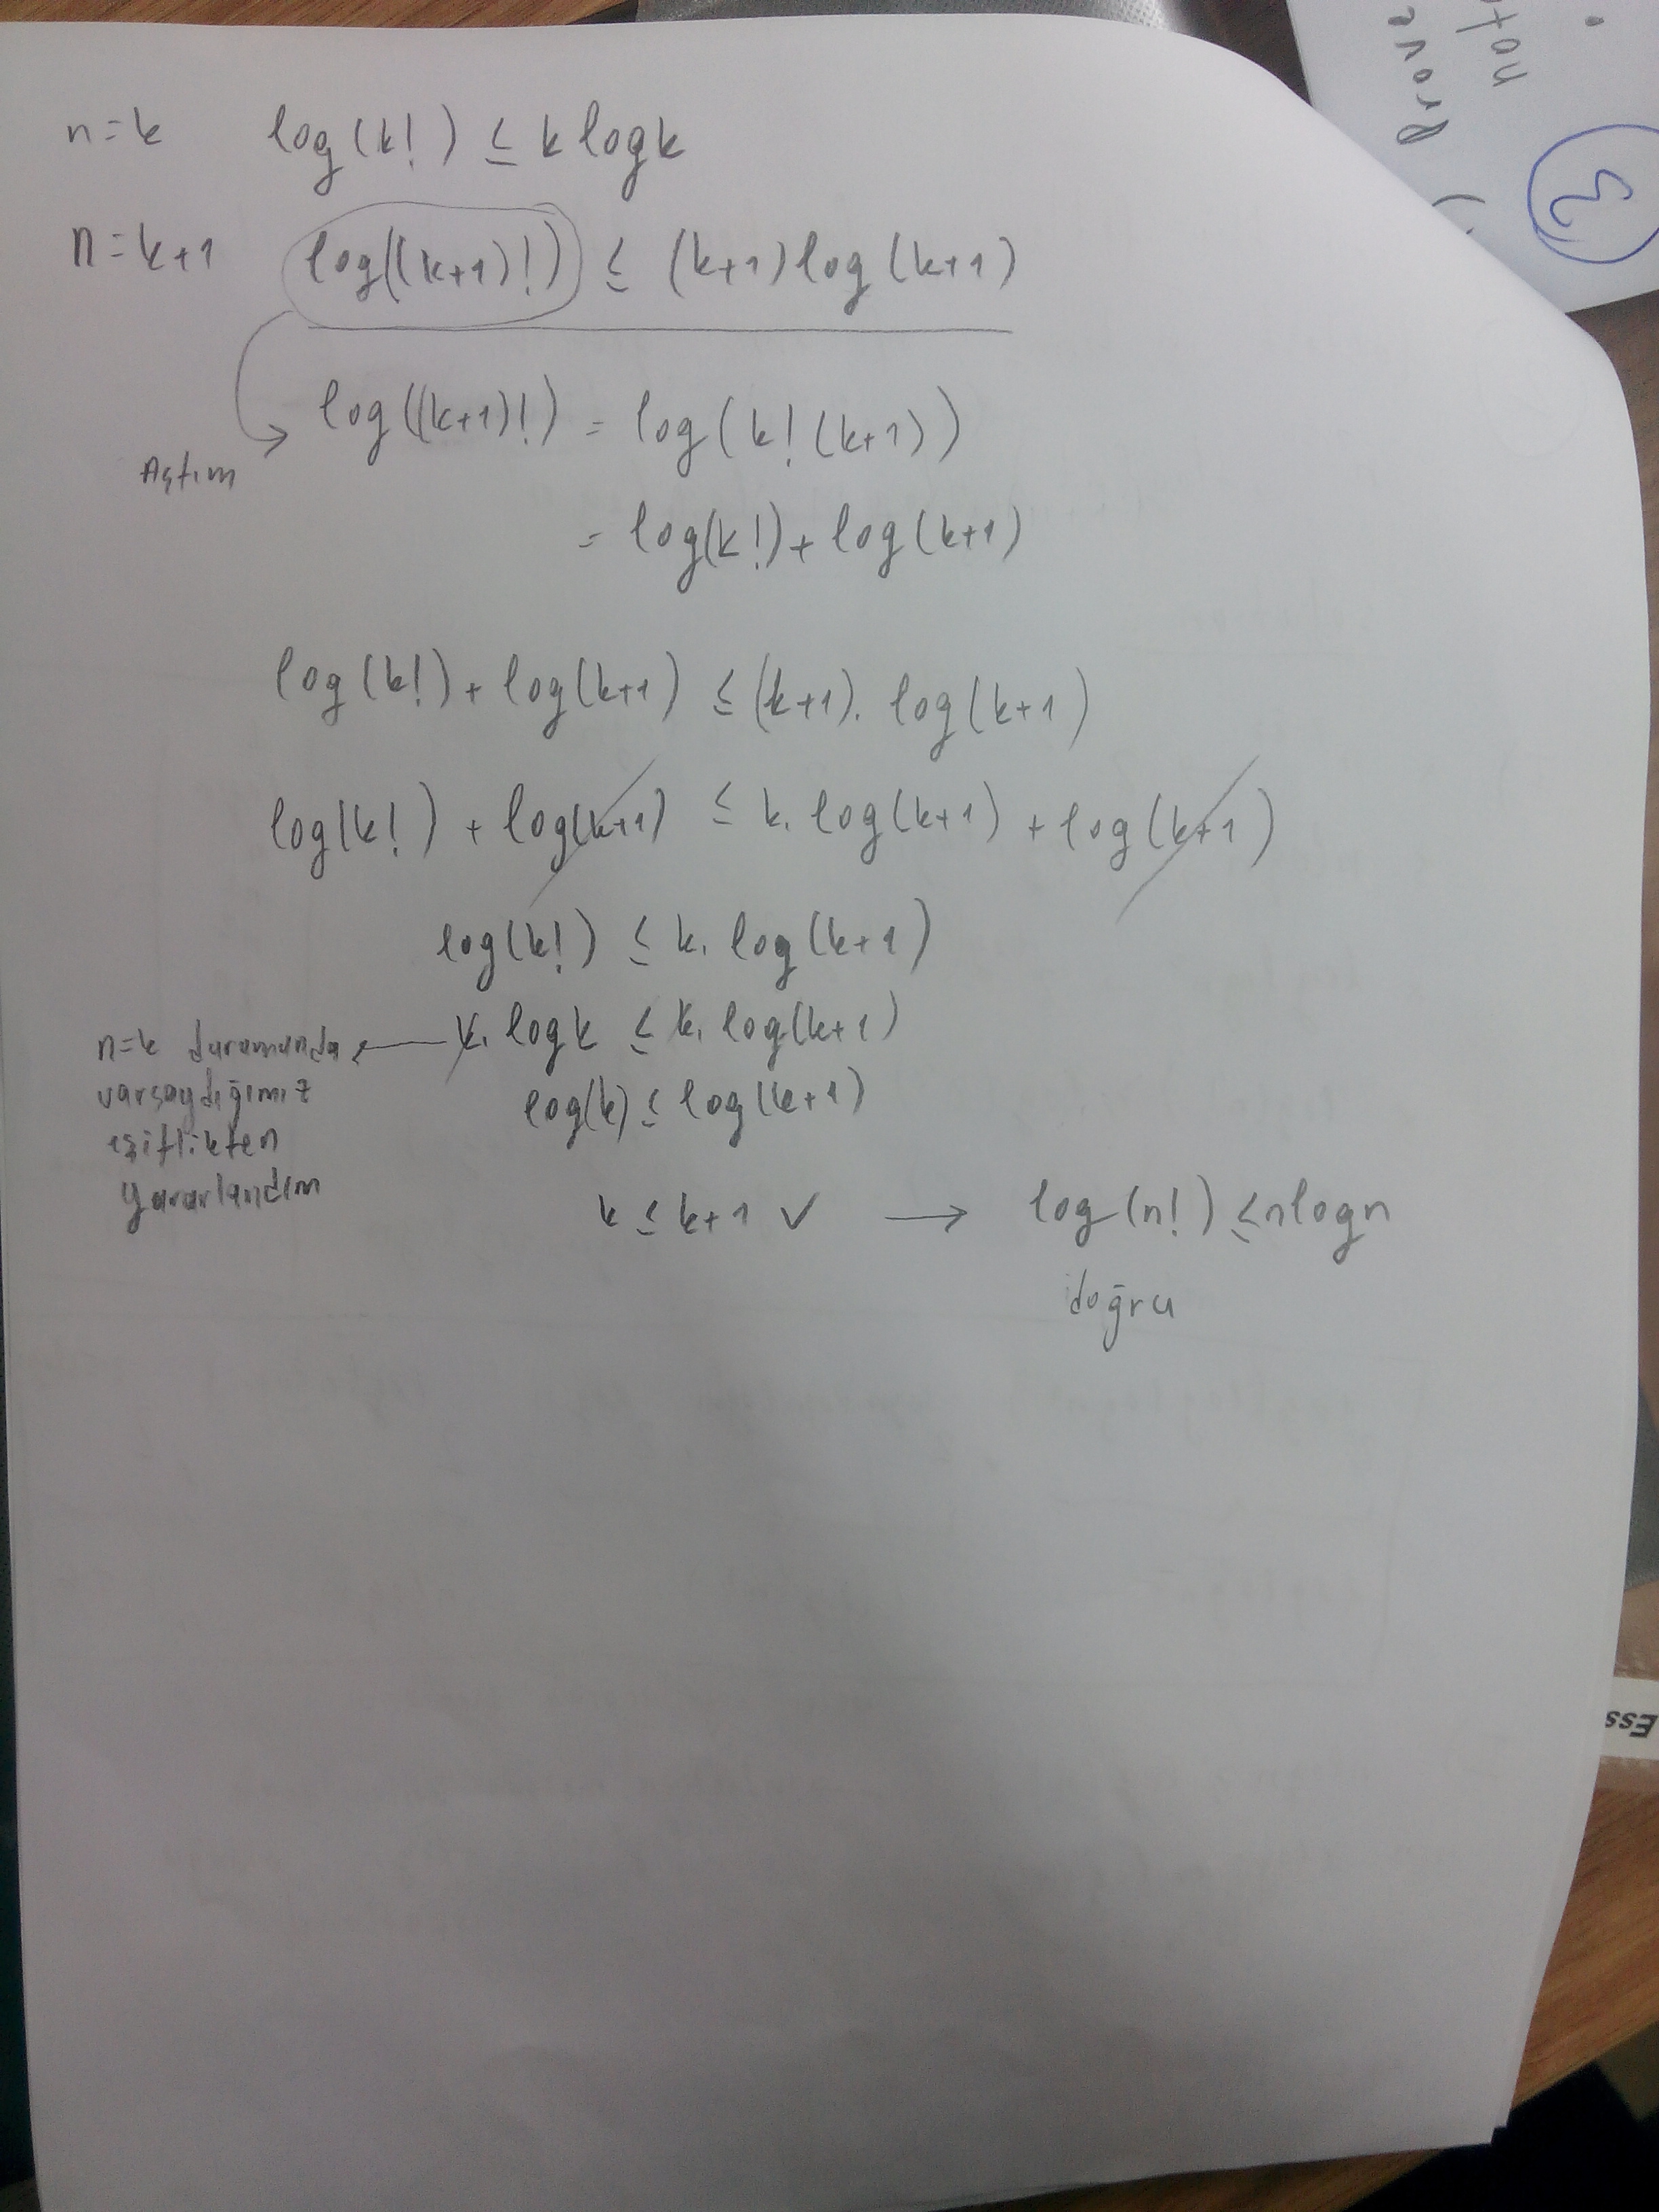 n=k log(k!) ≤ k logk
n=k+1 log((k+1)!) ≤ (k+1)log(k+1)
log((k+1)!) = log(k!(k+1))
Açtım
= log(k!)+log(k+1)
log(k!)+log(k+1) ≤ (k+1). log(k+1)
log(k!) + log(k+1) ≤ k. log(k+1) + log(k+1)
log(k!) ≤ k. log(k+1)
k. logk ≤ k. log(k+1)
n=k durumunda
varsaydığımız
eşitlikten
yararlandım
log(k) ≤ log(k+1)
k ≤ k+1 ✓ → log(n!) ≤nlogn
doğru
3
Prove
not
Ess